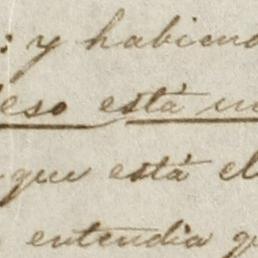 : y habiend
eso está un
que está el
entendia q